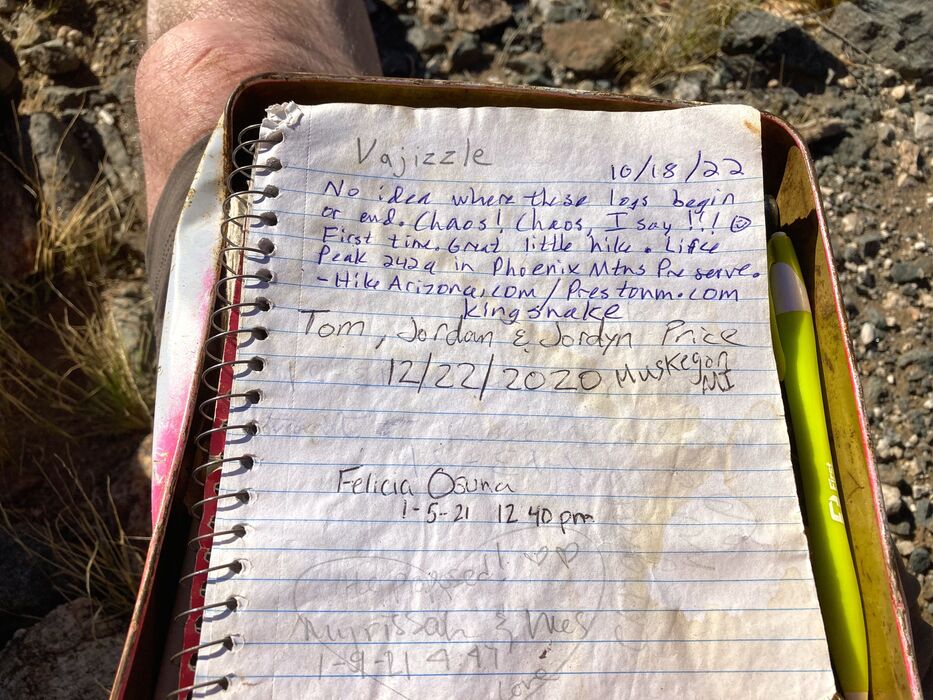 Vajizzle
10/18/22
No idea where these logs begin
or end. Chaos! Chaos, I say!!! ☺
First time. Great little hike. Lifee
Peak 242a in Phoenix Mtns Preserve.
-HikeArizona.com/Prestonm.com
kingsnake
Tom, Jordan & Jordyn Price
12/22/2020 Muskegon
MI
Felicia Osuna
1-5-21 12 40 pm
He proposed!
Myrissah & Wes
1-9-21 4:47
Love